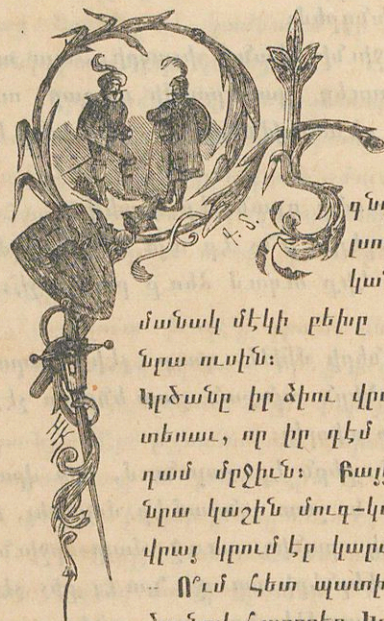 գնա
խու
կան
մանակ մէկի բեխը
նրա ուսին:
Կրծանը իր ձիու վրա
տեսաւ, որ իր դէմ
դամ մրջիւն: Բայց
նրա կաշին մուգ-կ
վրայ կրում էր կար
– Ո՞ւմ հետ պատի